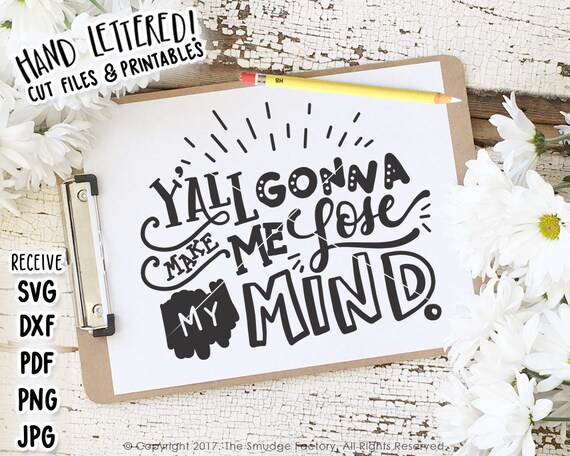 HAND LETTERED!
CUT FILES & PRINTABLES
HB
Y'ALL GONNA
MAKE ME Lose
MY MIND.
RECEIVE
SVG
DXF
PDF
PNG
JPG
© Copyright 2017. The Smudge Factory. All Rights Reserved.